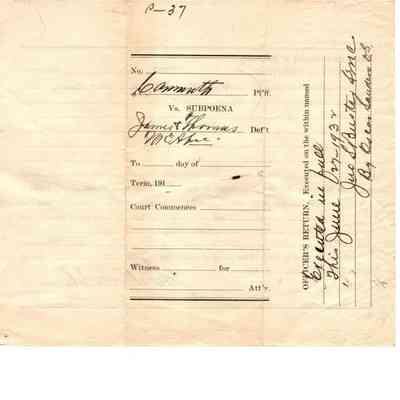 P-37
No.
Comwth Pl'ff.
Vs. SUBPOENA
James & Thomas Def't
McAfee
To day of
Term, 191
Court Commences
Witness for
Att'y.
OFFICER'S RETURN, Executed on the within named
Executed in full
This June 1932
Jno S. Buster
By Oscar Sanders D.S.